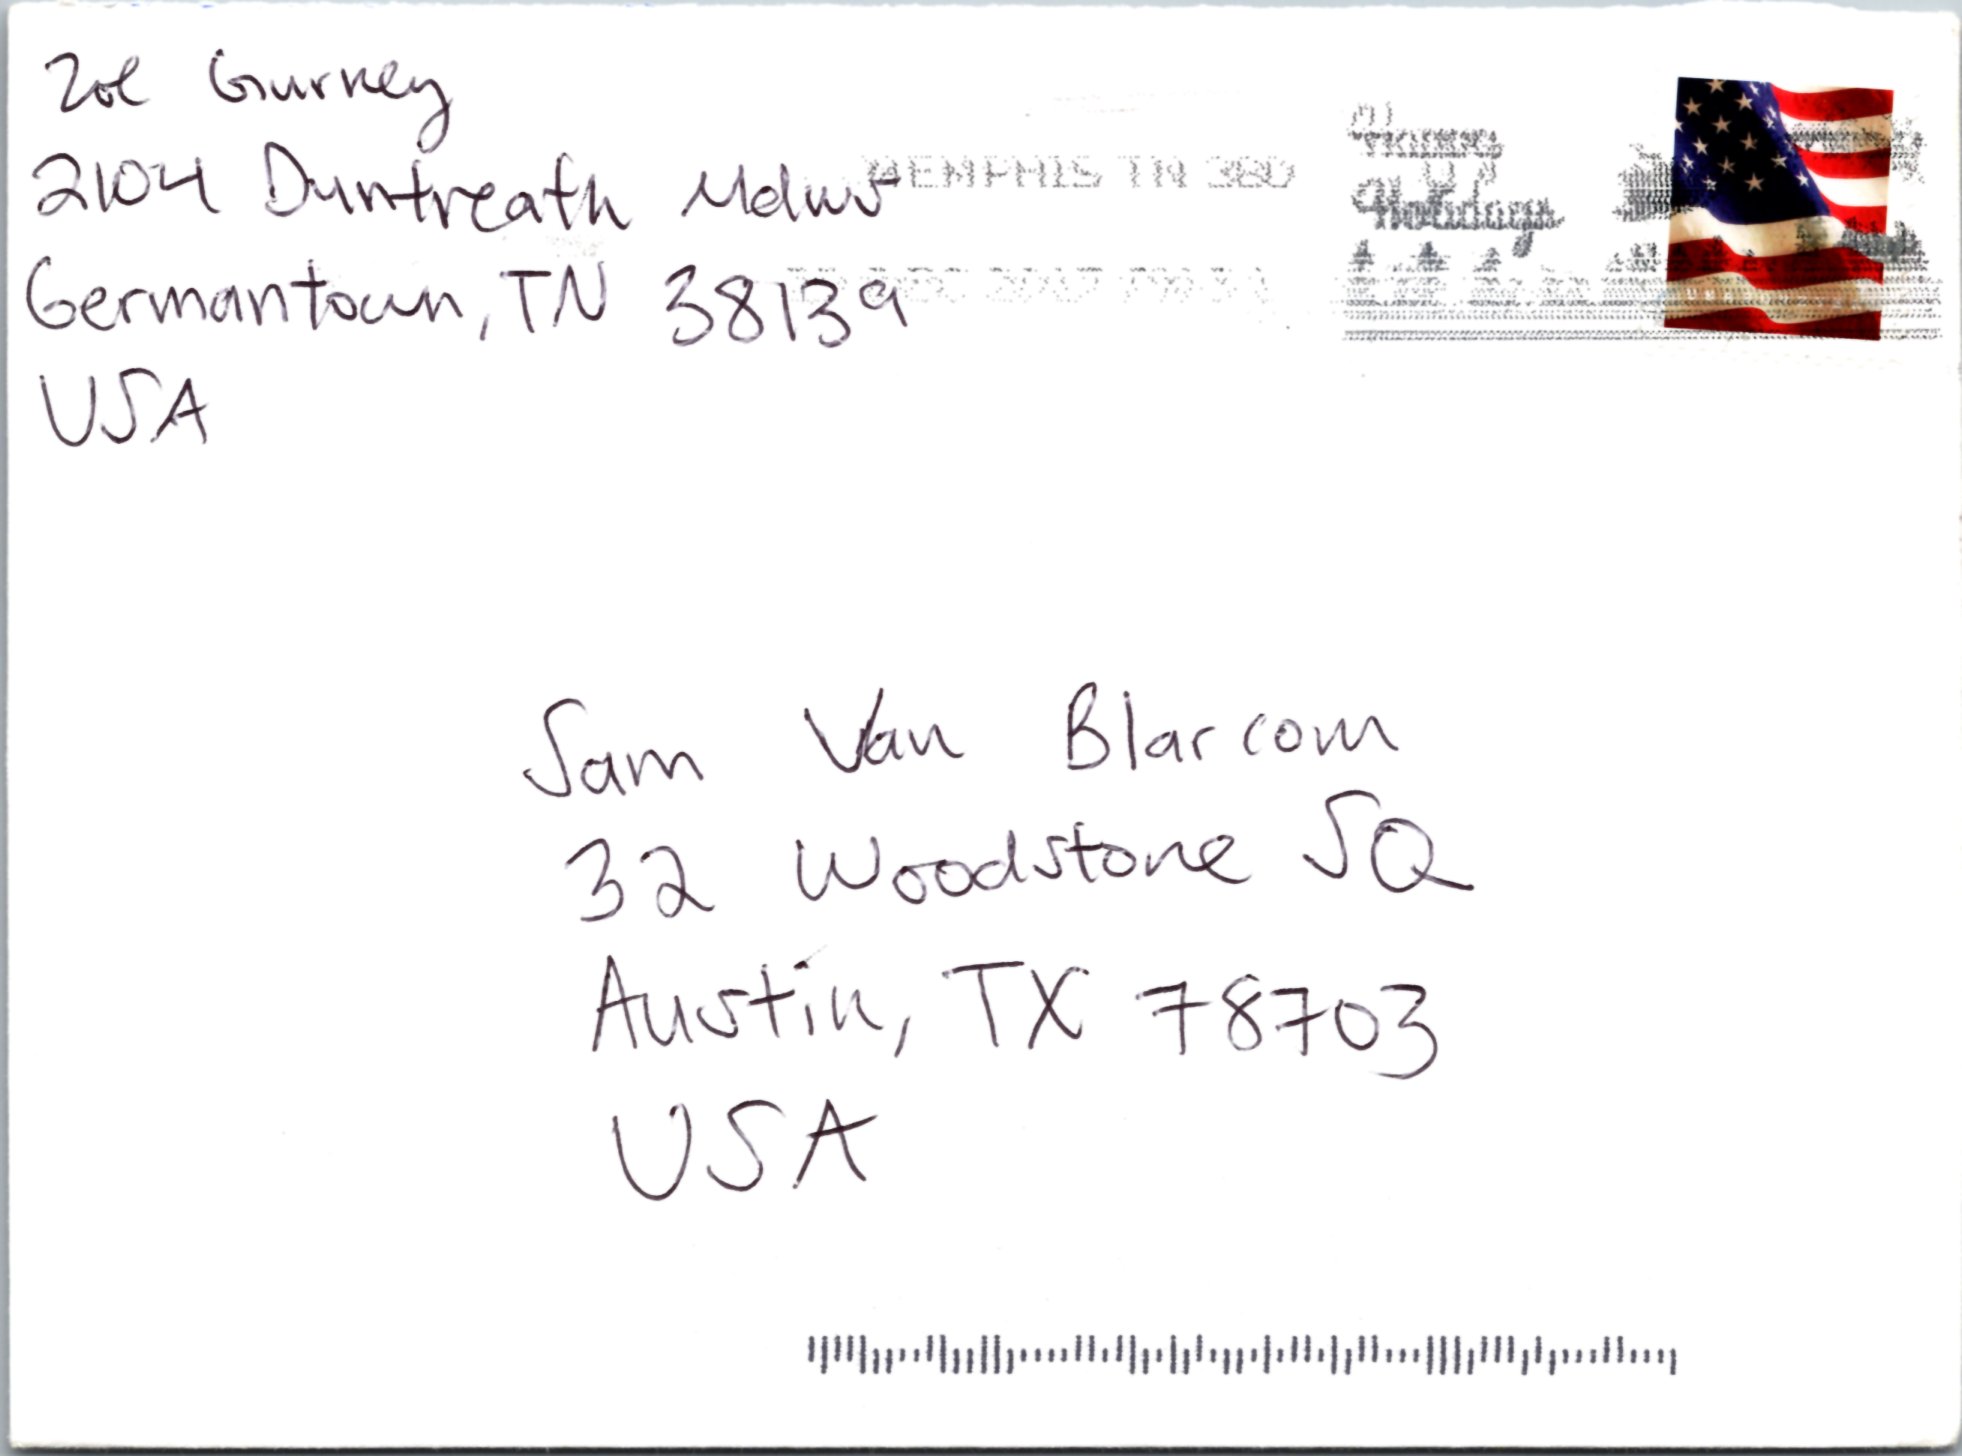 Zoe Gurney
2104 Duntreath Mdws
Germantown, TN 38139
USA
MEMPHIS TN 380
2017
Holidays
Sam Van Blarcom
32 Woodstone SQ
Austin, TX 78703
USA